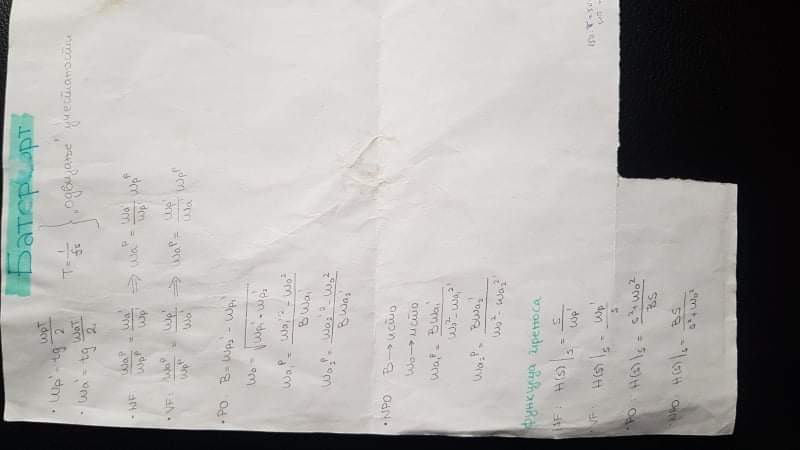 Батерворт
• ωp' = tg ωpT/2
• ωa' = tg ωaT/2
T = 1/fs } „одвијање" учестаности
• NF: ωaᴾ/ωpᴾ = ωa'/ωp' ⇒ ωaᴾ = ωa'/ωp' ωpᴾ
• VF: ωaᴾ/ωpᴾ = ωp'/ωa' ⇒ ωaᴾ = ωp'/ωa' ωpᴾ
• PO B = ωp2' - ωp1'
ω0 = √(ωp1' · ωp2')
ωa1ᴾ = (ωa1'² - ω0²)/(B ωa1')
ωa2ᴾ = (ωa2'² - ω0²)/(B ωa2')
• NPO B → исто
ω0 → исто
ωa1ᴾ = B ωa1'/(ω0² - ωa1'²)
ωa2ᴾ = B ωa2'/(ω0² - ωa2'²)
функција преноса
NF: H(s)|s = s/ωp'
• VF: H(s)|s = ωp'/s
• PO: H(s)|s = (s² + ω0²)/Bs
• NPO H(s)|s = Bs/(s² + ω0²)